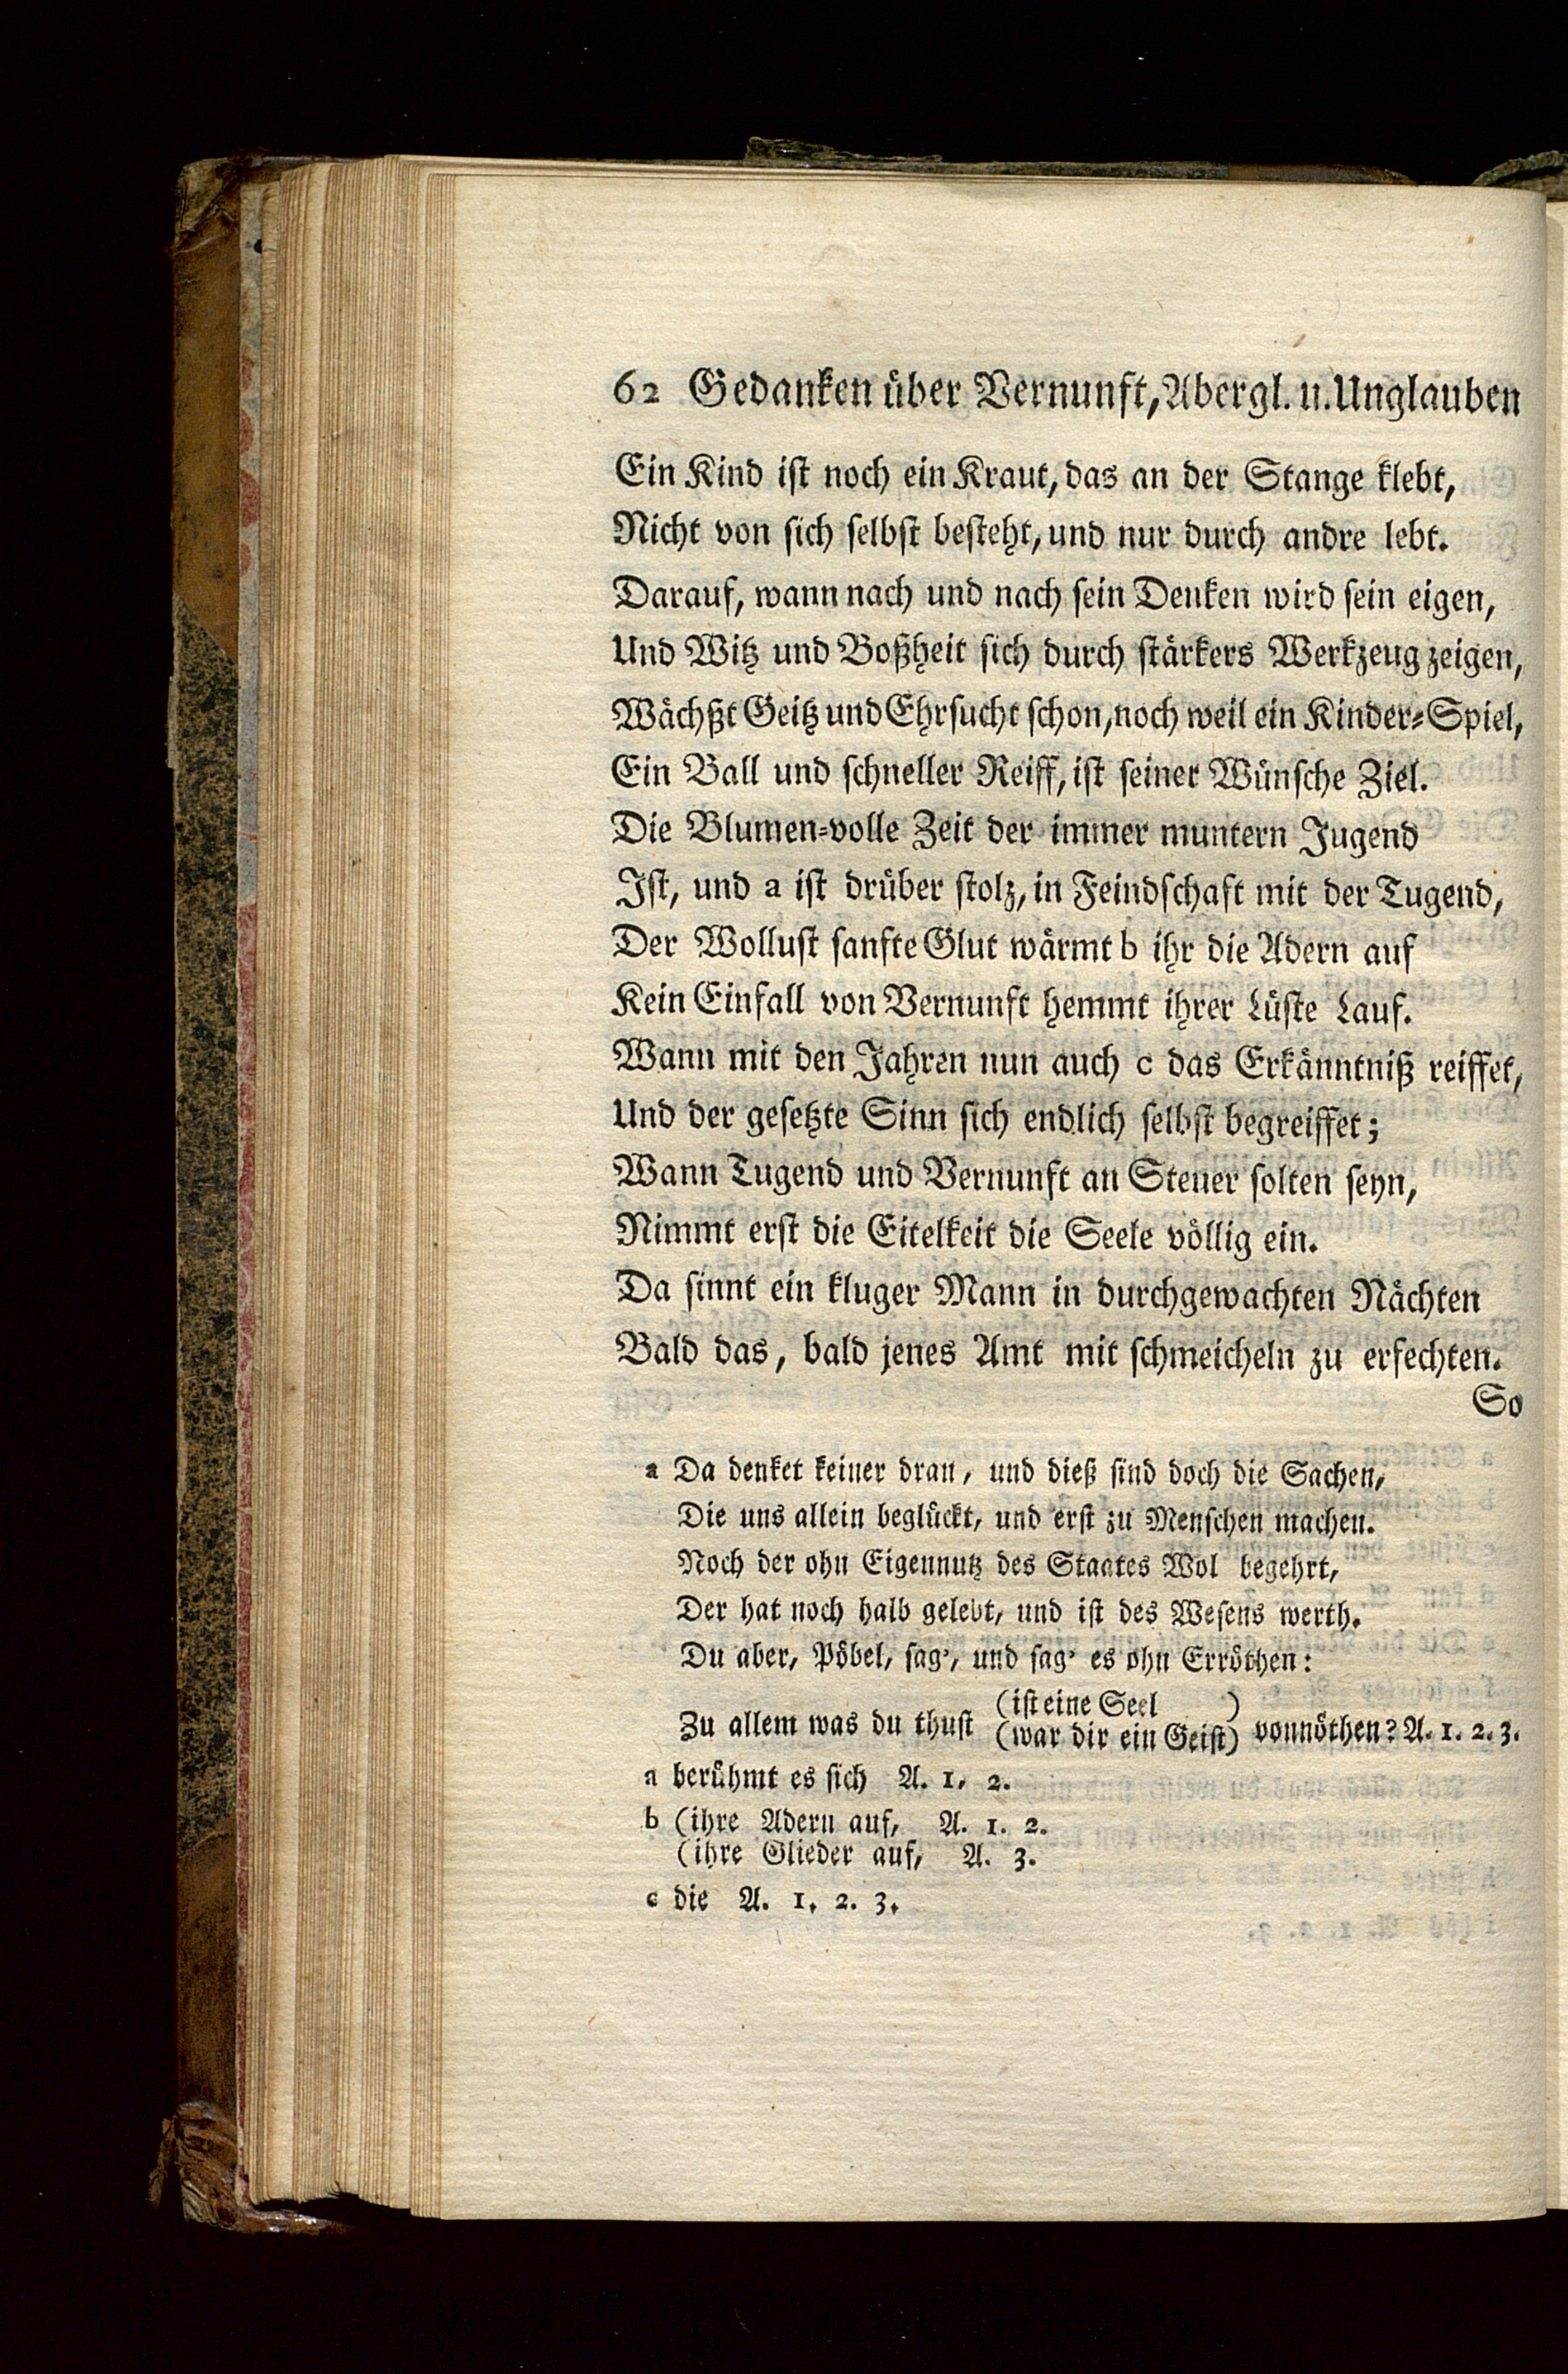 62 Gedanken über Vernunft, Abergl. u. Unglauben
Ein Kind ist noch ein Kraut, das an der Stange klebt,
Nicht von sich selbst besteht, und nur durch andre lebt.
Darauf, wann nach und nach sein Denken wird sein eigen,
Und Witz und Boßheit sich durch stärkers Werkzeug zeigen,
Wächßt Geitz und Ehrsucht schon, noch weil ein Kinder-Spiel,
Ein Ball und schneller Reiff, ist seiner Wünsche Ziel.
Die Blumen-volle Zeit der immer muntern Jugend
Ist, und a ist drüber stolz, in Feindschaft mit der Tugend,
Der Wollust sanfte Glut wärmt b ihr die Adern auf
Kein Einfall von Vernunft hemmt ihrer Lüste Lauf.
Wann mit den Jahren nun auch c das Erkänntniß reiffet,
Und der gesetzte Sinn sich endlich selbst begreiffet;
Wann Tugend und Vernunft an Steuer solten seyn,
Nimmt erst die Eitelkeit die Seele völlig ein.
Da sinnt ein kluger Mann in durchgewachten Nächten
Bald das, bald jenes Amt mit schmeicheln zu erfechten.
So
a Da denket keiner dran, und dieß sind doch die Sachen,
Die uns allein beglückt, und erst zu Menschen machen.
Noch der ohn Eigennutz des Staates Wol begehrt,
Der hat noch halb gelebt, und ist des Wesens werth.
Du aber, Pöbel, sag', und sag' es ohn Erröthen:
Zu allem was du thust (ist eine Seel )
(war dir ein Geist) vonnöthen? A. 1. 2. 3.
a berühmt es sich A. 1, 2.
b (ihre Adern auf, A. 1. 2.
(ihre Glieder auf, A. 3.
c die A. 1. 2. 3.